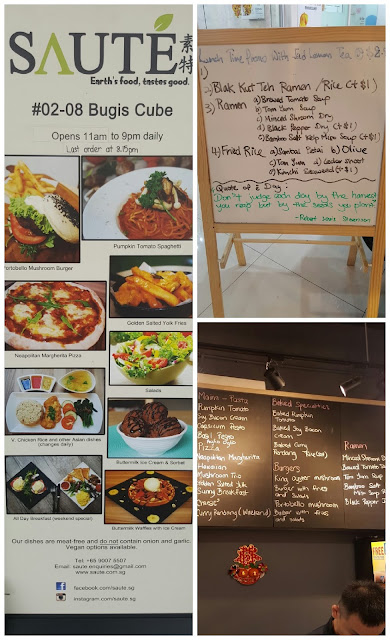 SAUTÉ 素特
Earth's food, tastes good.
#02-08 Bugis Cube
Opens 11am to 9pm daily
Last order at 8.15pm
Portobello Mushroom Burger
Pumpkin Tomato Spaghetti
Golden Salted Yolk Fries
Neapolitan Margherita Pizza
Salads
V. Chicken Rice and other Asian dishes
(changes daily)
Buttermilk Ice Cream & Sorbet
All Day Breakfast (weekend special)
Buttermilk Waffles with Ice Cream
Our dishes are meat-free and do not contain onion and garlic.
Vegan options available.
Tel: +65 9007 5507
Email: saute.enquiries@gmail.com
www.saute.sg
facebook.com/saute.sg
instagram.com/saute.sg
Lunch Time Promo with Iced Lemon Tea @ $8.
1)
2) Blak Kut Teh Ramen / Rice (+$1)
3) Ramen a) Brewed Tomato Soup
b) Tom Yum Soup
c) Minced Shroom Dry
d) Black Pepper Dry (+$1)
e) Bamboo Salt Kelp Miso Soup (+$1)
4) Fried Rice a) Sambal Petai b) Olive
c) Tom Yum d) Cedar Shoot
e) Kimchi Seaweed (+$1)
Quote of E Day:
Don't judge each day by the harvest
you reap but by the seeds you plant
- Robert Louis Stevenson
Mains - Pasta
Pumpkin Tomato
Soy Bacon Cream
Capsicum Pesto
Basil Pesto
Pizza
Neapolitan Margherita
Hawaiian
Mushroom Trio
Golden Salted Yolk
Sunny Breakfast
Baked Specialties
Baked Pumpkin
Tomato
Baked Soy Bacon
Cream
Baked Curry
Rendang
Burgers
King Oyster Mushroom
Burger with Fries
and Salads
Portobello Mushroom
Burger with Fries
and Salads
Ramen
Minced Shroom
Brewed Tomato
Tom Yum Soup
Bamboo Salt
Miso Soup
Black Pepper